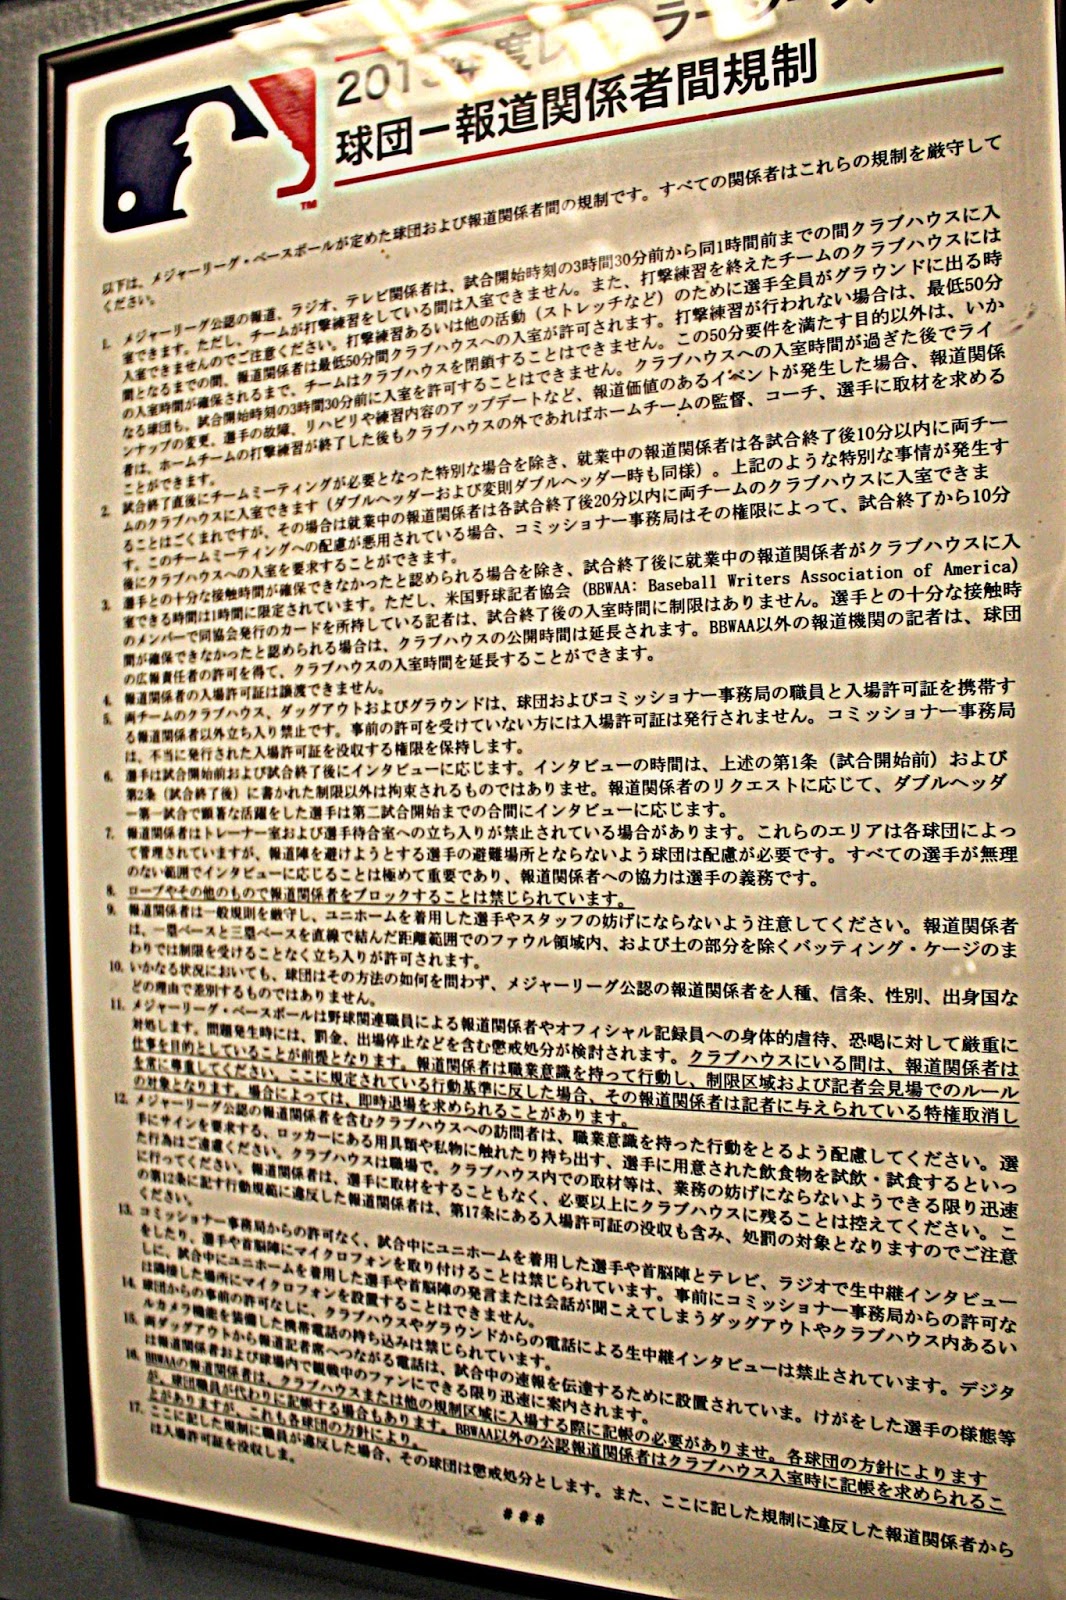 2013年度レ ラーシーズ
球団－報道関係者間規制
TM
以下は、メジャーリーグ・ベースボールが定めた球団および報道関係者間の規制です。すべての関係者はこれらの規制を厳守して
ください。
1. メジャーリーグ公認の報道、ラジオ、テレビ関係者は、試合開始時刻の3時間30分前から同1時間前までの間クラブハウスに入
室できます。ただし、チームが打撃練習をしている間は入室できません。また、打撃練習を終えたチームのクラブハウスには
入室できませんのでご注意ください。打撃練習あるいは他の活動（ストレッチなど）のために選手全員がグラウンドに出る時
間となるまでの間、報道関係者は最低50分間クラブハウスへの入室が許可されます。打撃練習が行われない場合は、最低50分
の入室時間が確保されるまで、チームはクラブハウスを閉鎖することはできません。この50分要件を満たす目的以外は、いか
なる球団も、試合開始時刻の3時間30分前に入室を許可することはできません。クラブハウスへの入室時間が過ぎた後でライ
ンナップの変更、選手の故障、リハビリや練習内容のアップデートなど、報道価値のあるイベントが発生した場合、報道関係
者は、ホームチームの打撃練習が終了した後もクラブハウスの外であればホームチームの監督、コーチ、選手に取材を求める
ことができます。
2. 試合終了直後にチームミーティングが必要となった特別な場合を除き、就業中の報道関係者は各試合終了後10分以内に両チー
ムのクラブハウスに入室できます（ダブルヘッダーおよび変則ダブルヘッダー時も同様）。上記のような特別な事情が発生す
ることはごくまれですが、その場合は就業中の報道関係者は各試合終了後20分以内に両チームのクラブハウスに入室できま
す。このチームミーティングへの配慮が悪用されている場合、コミッショナー事務局はその権限によって、試合終了から10分
後にクラブハウスへの入室を要求することができます。
3. 選手との十分な接触時間が確保できなかったと認められる場合を除き、試合終了後に就業中の報道関係者がクラブハウスに入
室できる時間は1時間に限定されています。ただし、米国野球記者協会（BBWAA: Baseball Writers Association of America）
のメンバーで同協会発行のカードを所持している記者は、試合終了後の入室時間に制限はありません。選手との十分な接触時
間が確保できなかったと認められる場合は、クラブハウスの公開時間は延長されます。BBWAA以外の報道機関の記者は、球団
の広報責任者の許可を得て、クラブハウスの入室時間を延長することができます。
4. 報道関係者の入場許可証は譲渡できません。
5. 両チームのクラブハウス、ダッグアウトおよびグラウンドは、球団およびコミッショナー事務局の職員と入場許可証を携帯す
る報道関係者以外立ち入り禁止です。事前の許可を受けていない方には入場許可証は発行されません。コミッショナー事務局
は、不当に発行された入場許可証を没収する権限を保持します。
6. 選手は試合開始前および試合終了後にインタビューに応じます。インタビューの時間は、上述の第1条（試合開始前）および
第2条（試合終了後）に書かれた制限以外は拘束されるものではありませ。報道関係者のリクエストに応じて、ダブルヘッダ
ー第一試合で顕著な活躍をした選手は第二試合開始までの合間にインタビューに応じます。
7. 報道関係者はトレーナー室および選手待合室への立ち入りが禁止されている場合があります。これらのエリアは各球団によっ
て管理されていますが、報道陣を避けようとする選手の避難場所とならないよう球団は配慮が必要です。すべての選手が無理
のない範囲でインタビューに応じることは極めて重要であり、報道関係者への協力は選手の義務です。
8. ロープやその他のもので報道関係者をブロックすることは禁じられています。
9. 報道関係者は一般規則を厳守し、ユニホームを着用した選手やスタッフの妨げにならないよう注意してください。報道関係者
は、一塁ベースと三塁ベースを直線で結んだ距離範囲でのファウル領域内、および土の部分を除くバッティング・ケージのま
わりでは制限を受けることなく立ち入りが許可されます。
10. いかなる状況においても、球団はその方法の如何を問わず、メジャーリーグ公認の報道関係者を人種、信条、性別、出身国な
どの理由で差別するものではありません。
11. メジャーリーグ・ベースボールは野球関連職員による報道関係者やオフィシャル記録員への身体的虐待、恐喝に対して厳重に
対処します。問題発生時には、罰金、出場停止などを含む懲戒処分が検討されます。クラブハウスにいる間は、報道関係者は
仕事を目的としていることが前提となります。報道関係者は職業意識を持って行動し、制限区域および記者会見場でのルール
を常に尊重してください。ここに規定されている行動基準に反した場合、その報道関係者は記者に与えられている特権取消し
の対象となります。場合によっては、即時退場を求められることがあります。
12. メジャーリーグ公認の報道関係者を含むクラブハウスへの訪問者は、職業意識を持った行動をとるよう配慮してください。選
手にサインを要求する、ロッカーにある用具類や私物に触れたり持ち出す、選手に用意された飲食物を試飲・試食するといっ
た行為はご遠慮ください。クラブハウスは職場で。クラブハウス内での取材等は、業務の妨げにならないようできる限り迅速
に行ってください。報道関係者は、選手に取材をすることもなく、必要以上にクラブハウスに残ることは控えてください。こ
の第12条に記す行動規範に違反した報道関係者は、第17条にある入場許可証の没収も含み、処罰の対象となりますのでご注意
ください。
13. コミッショナー事務局からの許可なく、試合中にユニホームを着用した選手や首脳陣とテレビ、ラジオで生中継インタビュー
をしたり、選手や首脳陣にマイクロフォンを取り付けることは禁じられています。事前にコミッショナー事務局からの許可な
しに、試合中にユニホームを着用した選手や首脳陣の発言または会話が聞こえてしまうダッグアウトやクラブハウス内あるい
は隣接した場所にマイクロフォンを設置することはできません。
14. 球団からの事前の許可なしに、クラブハウスやグラウンドからの電話による生中継インタビューは禁止されています。デジタ
ルカメラ機能を装備した携帯電話の持ち込みは禁じられています。
15. 両ダッグアウトから報道記者席へつながる電話は、試合中の速報を伝達するために設置されていま。けがをした選手の様態等
は報道関係者および球場内で観戦中のファンにできる限り迅速に案内されます。
16. BBWAAの報道関係者は、クラブハウスまたは他の規制区域に入場する際に記帳の必要がありませ。各球団の方針によります
が、球団職員が代わりに記帳する場合もあります。BBWAA以外の公認報道関係者はクラブハウス入室時に記帳を求められるこ
とがありますが、これも各球団の方針により。
17. ここに記した規制に職員が違反した場合、その球団は懲戒処分とします。また、ここに記した規制に違反した報道関係者から
は入場許可証を没収しま。
###